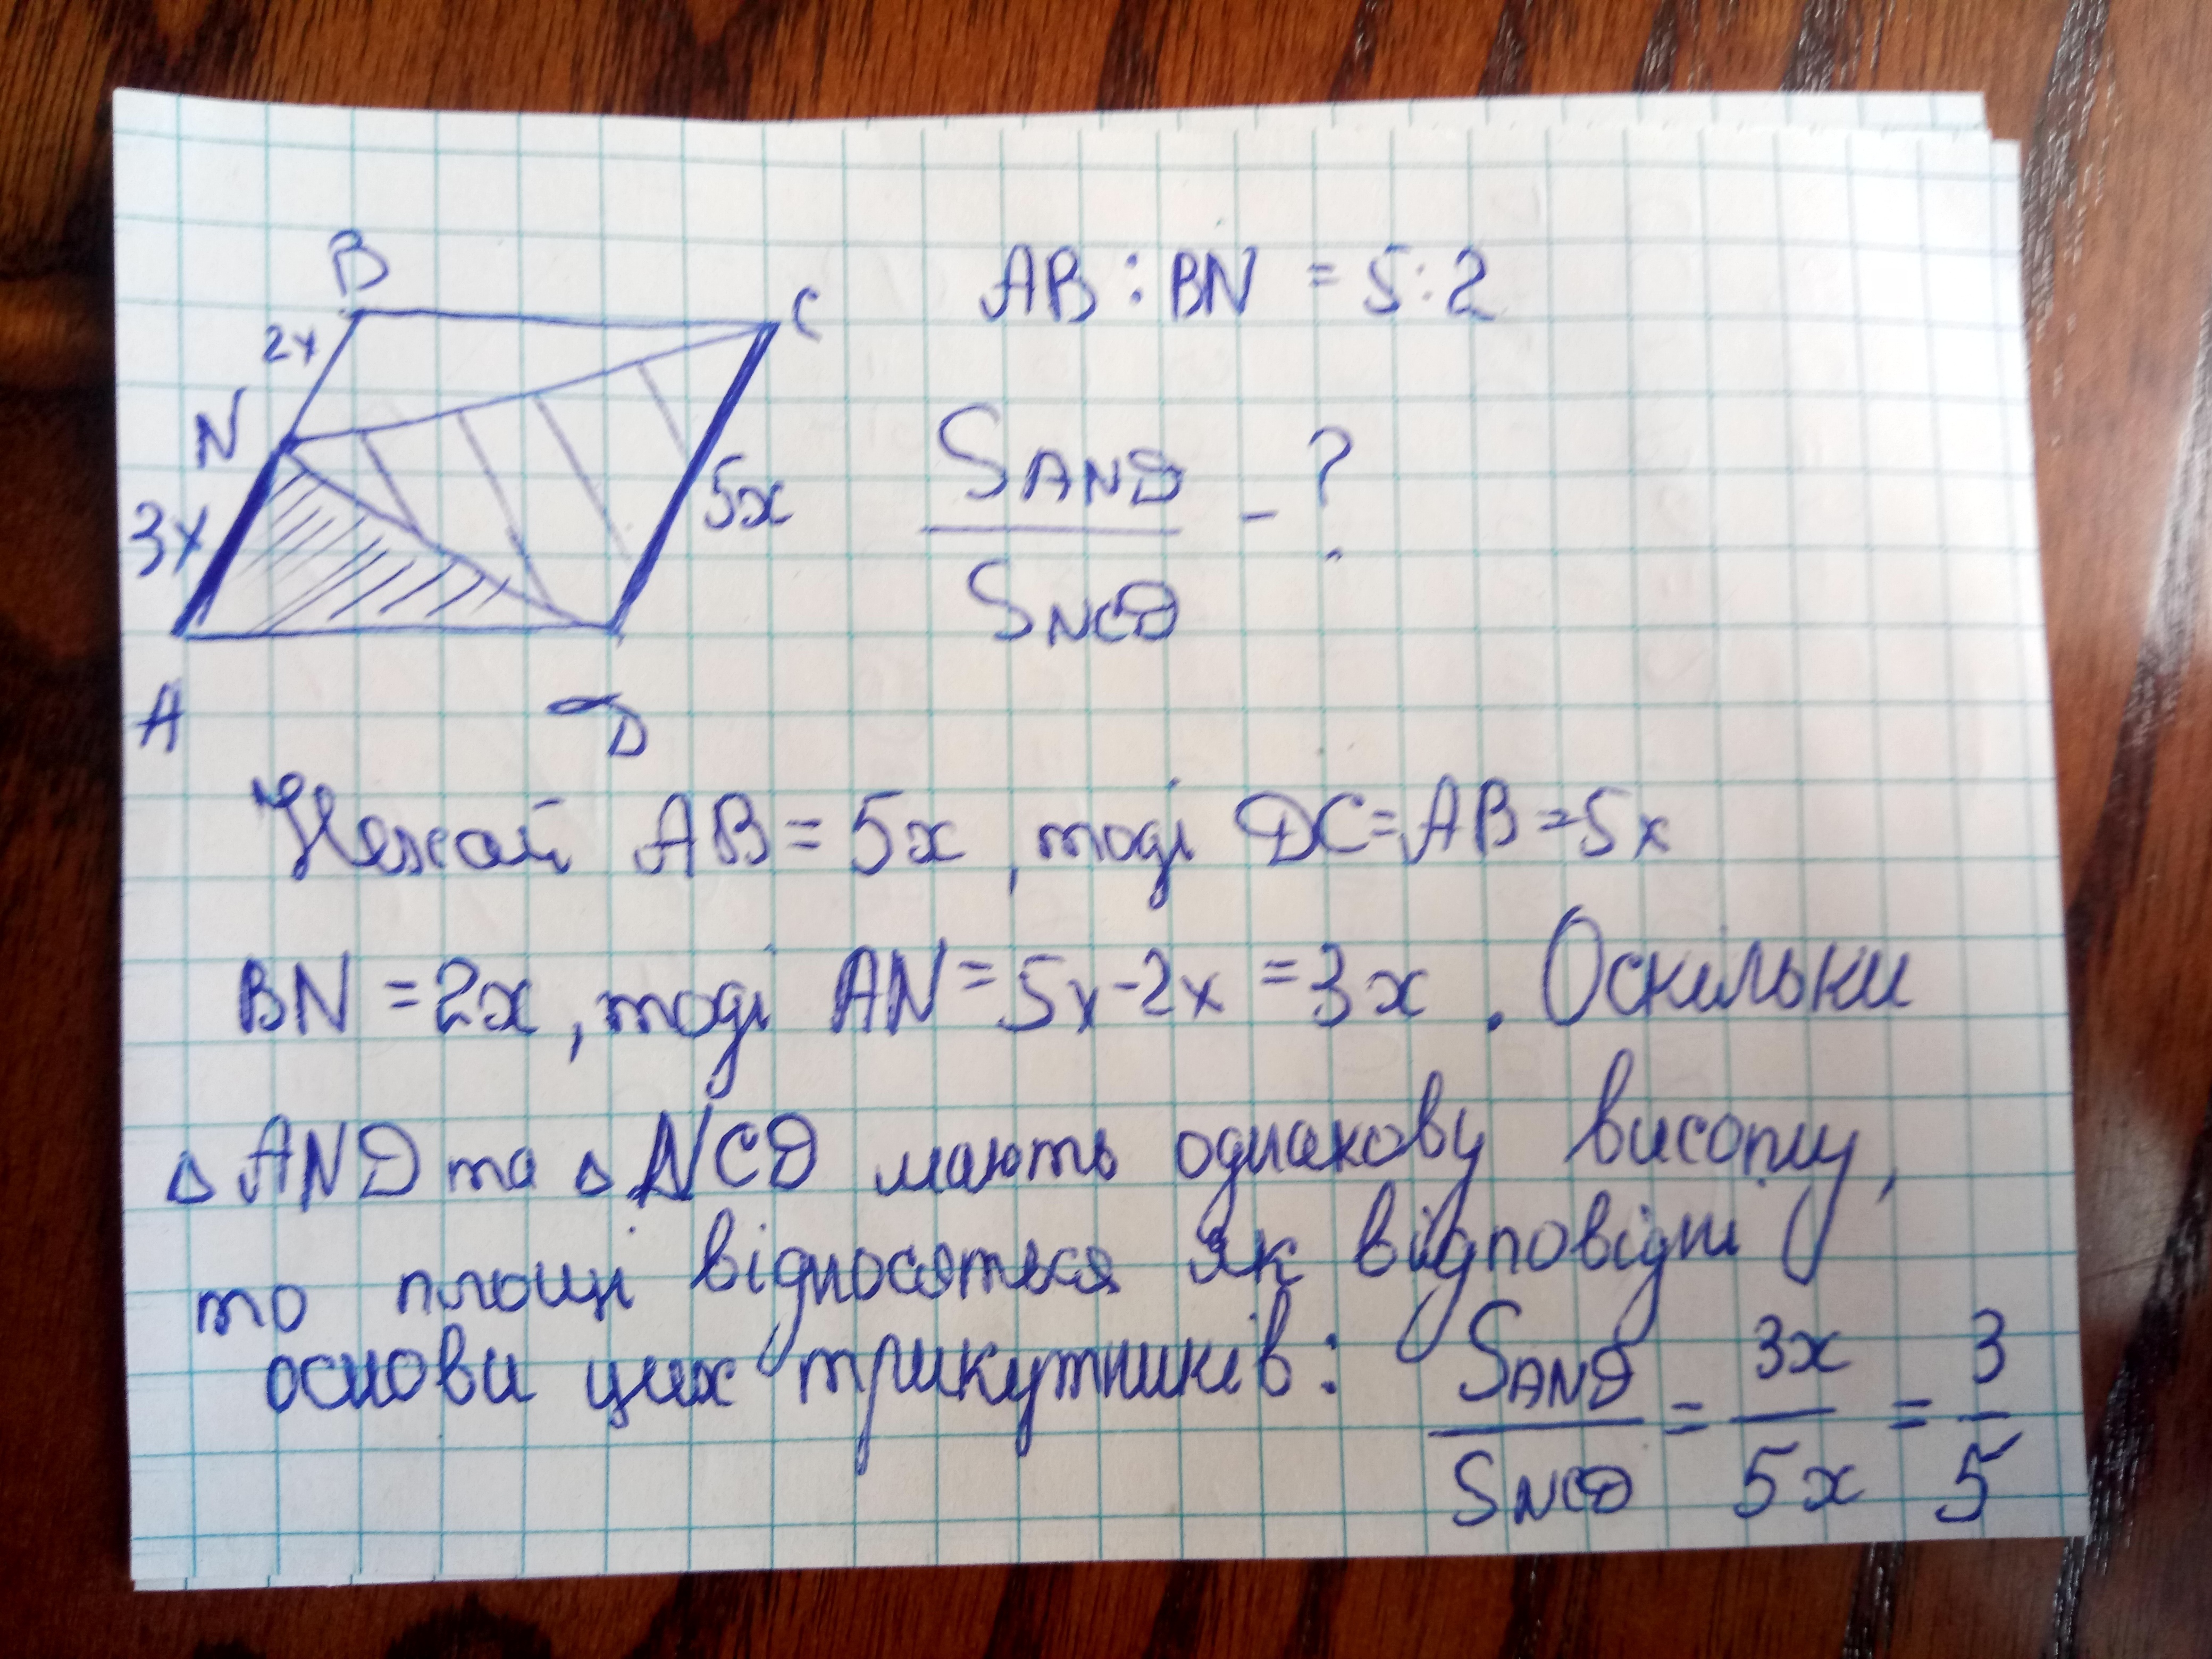 B
C
2x
N
3x
5x
A
D
AB : BN = 5:2
S AND / S NCD - ?
Нехай AB = 5x , тоді DC = AB = 5x
BN = 2x , тоді AN = 5x - 2x = 3x . Оскільки
△ AND та △ NCD мають однакову висоту,
то площі відносяться як відповідні
основи цих трикутників: S AND / S NCD = 3x / 5x = 3 / 5